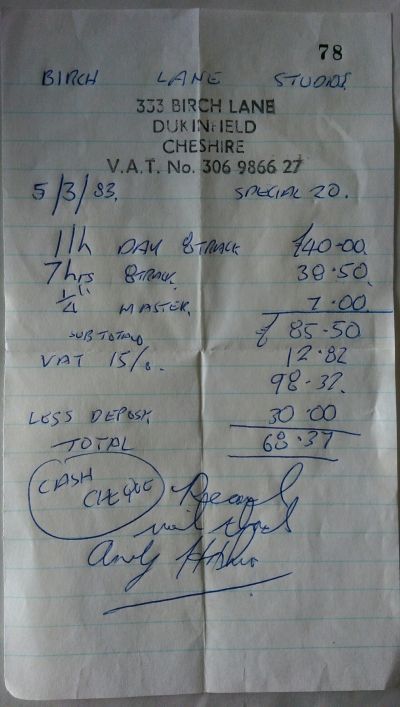 78
BIRCH LANE STUDIOS
333 BIRCH LANE
DUKINFIELD
CHESHIRE
V.A.T. No. 306 9866 27
5/3/83. SPECIAL 20.
DAY 8 TRACK £40.00
7hrs 8 TRACK 38.50
1/4" MASTER. 7.00
SUB TOTAL £ 85.50
VAT 15%. 12.82
98.32
LESS DEPOSIT 30.00
TOTAL 68.32
CASH
CHEQUE Received
with thanks
Andy